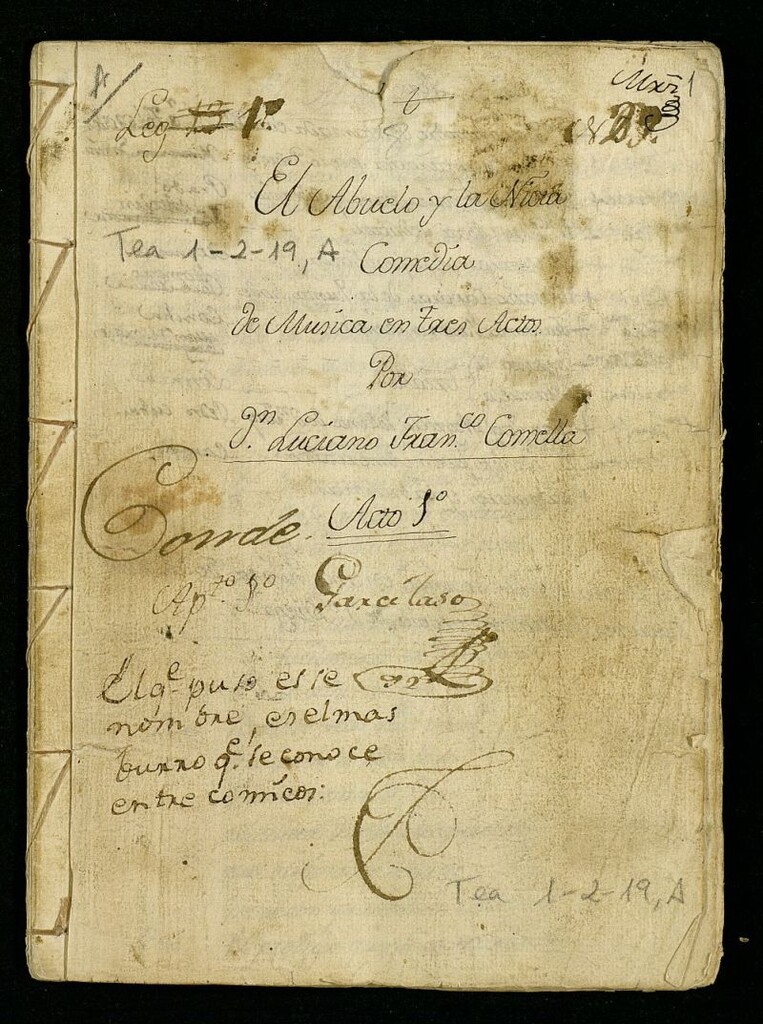 A
Leg 13 1º
El Abuelo y la Nieta
Tea 1-2-19, A
Comedia
de Musica en tres Actos.
Por
Dn. Luciano Fran.co Comella
Acto 1º
Conde.
Ap.to 1º Garcilaso
El q.e puso este
nombre, es el mas
burro q.e se conoce
entre comicos:
Tea 1-2-19, A